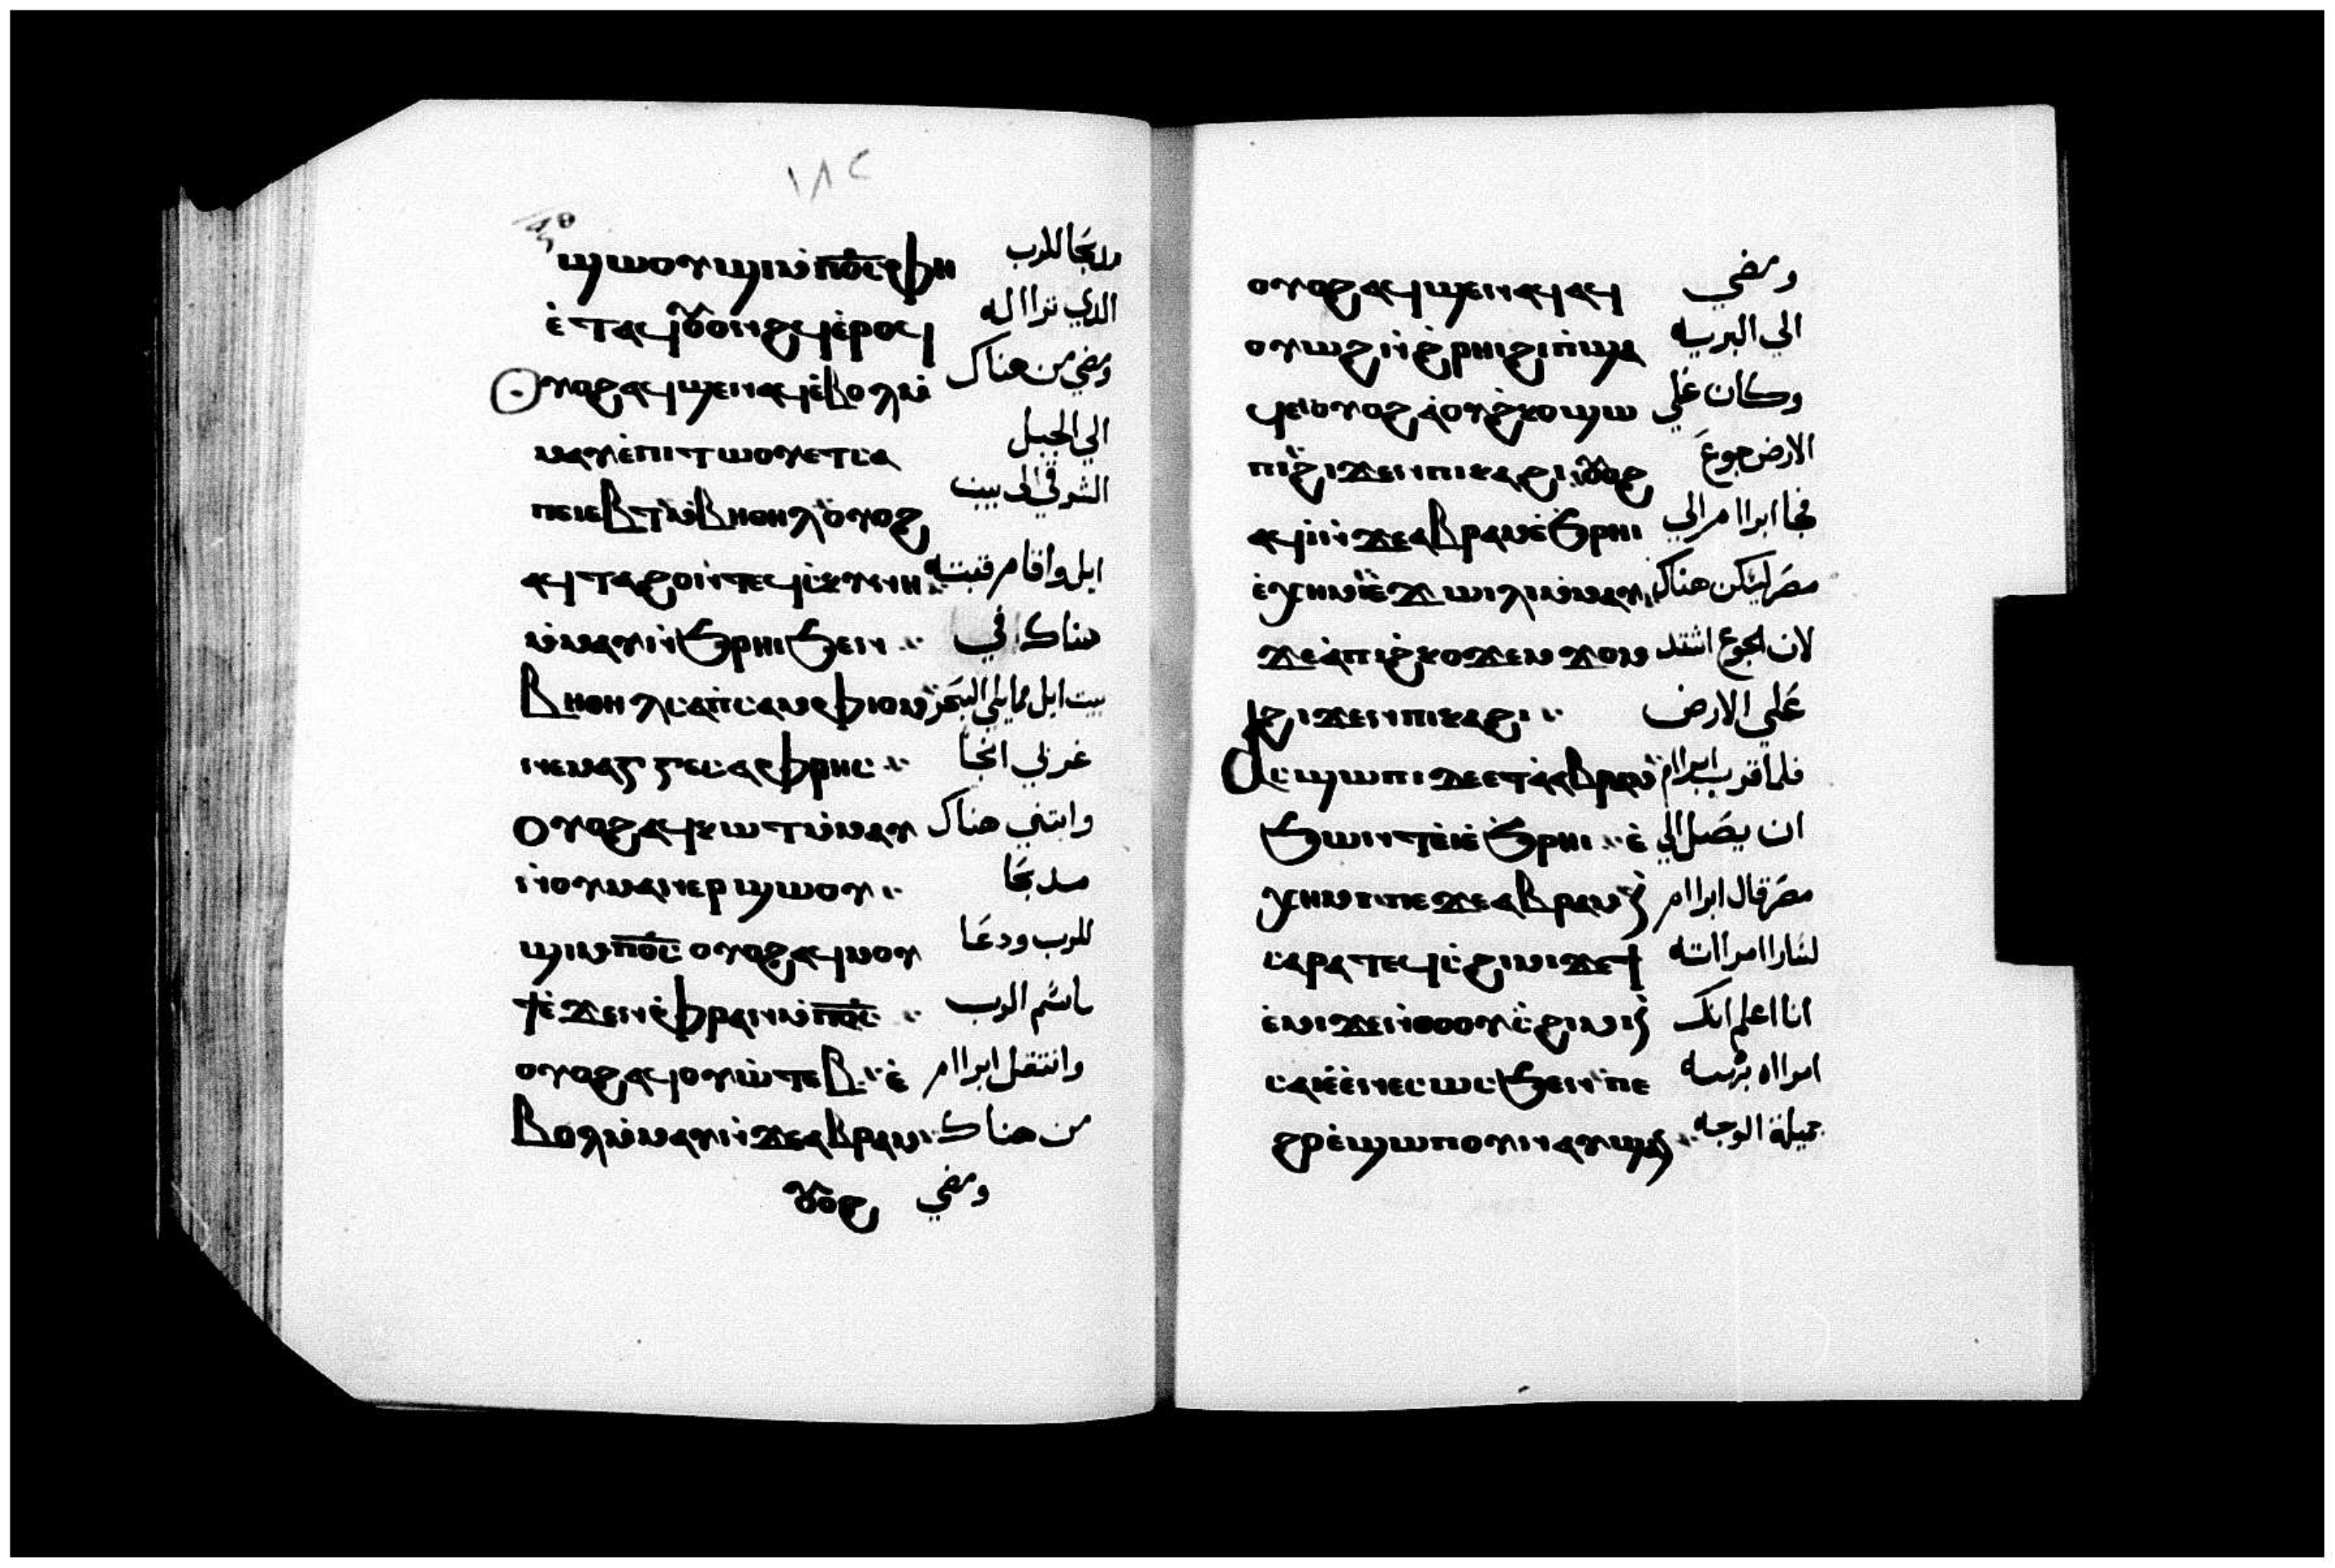 ١٨٢
ϣⲱⲟⲩϣⲓⲙ̀ⲡⲟ̅ⲥ̅ⲫⲏ مدبحا للرب
ⲉ̀ⲧⲁϥⲟⲩⲟⲛϩϥⲉ̀ⲣⲟϥ الذي تراا له
Ⲟⲩⲟϩⲁϥϣⲉⲛⲁϥⲉ̀ⲃⲟⲗⲙ̀ ومضي من هناك
ⲙⲁⲩⲉ̀ⲡⲓⲧⲱⲟⲩⲉⲧⲥⲁ الي الجبل
ⲡⲉⲓⲉⲃⲧⲙ̀ⲃⲏⲑⲏⲗⲟⲩⲟϩ الشرقي الى بيت
ⲁϥⲧⲁϩⲟⲛ̀ⲧⲉϥⲥ̀ⲕⲩⲛⲏ ايل واقام قبته
ⲙ̀ⲙⲁⲩⲛ̀ϧⲣⲏⲓϧⲉⲛ هناك في
Ⲃⲏⲑⲏⲗⲥⲁⲡⲥⲁⲙⲫⲓⲟⲙ بيت ايل مما يلي البحر
ⲛⲉⲙⲁⲅⲅⲉⲥⲁⲫⲣⲏⲥ غربي انجا
Ⲟⲩⲟϩⲁϥⲕⲱⲧⲙ̀ⲙⲁⲩ وابتني هناك
ⲛ̀ⲟⲩⲙⲁⲛⲉⲣϣⲱⲟⲩ مدبحا
ϣⲓⲙⲡⲟ̅ⲥ̅ ⲟⲩⲟϩⲁϥⲙⲟⲩ للرب ودعا
ϯⲉ̀ϫⲉⲛⲫⲣⲁⲛⲙ̀ⲡⲟ̅ⲥ̅ باسم الرب
ⲟⲩⲟϩⲁϥⲟⲩⲱ̀ⲧⲉⲃ ⲉ̀ وانتقل ابراام
Ⲃⲟⲗⲙ̀ⲙⲁⲩⲛ̀ϫⲉⲁⲃⲣⲁⲙ من هناك
ⲟⲩⲟϩ ومضي
ⲟⲩⲟϩⲁϥϣⲉⲛⲁϥⲁϥ ومضي
ⲟⲩⲱϩⲛ̀ϩ̀ⲣⲏⲓϩⲓⲡ̀ϣⲁ الي البريه
ϥⲉⲟⲩⲟϩⲁ̀ⲟⲩϩ̀ⲕⲟϣⲱ وكان غلي
ⲡⲓϩⲓϫⲉⲛⲡⲓⲕⲁϩⲓⲟⲩⲟϩ الارض جوع
ⲁϥⲓ̀ⲛ̀ϫⲉⲁⲃⲣⲁⲙⲉ̀ϧⲣⲏⲓ فجا ابراام الي
ⲉ̀ⲭⲏⲙⲓⲉ̀ϫⲱⲓⲗⲓⲙ̀ⲙⲁⲩ مصر ليسكن هناك
ϫⲉⲁ̀ⲡⲓϩ̀ⲕⲟϫⲉⲙϫⲟⲙ لان الجوع اشتد
ϩⲓϫⲉⲛⲡⲓⲕⲁϩⲓ علي الارض
Ⲁⲥϣⲱⲡⲓⲇⲉⲉⲧⲁⲁⲃⲣⲁⲙ فلما قرب ابراام
ϧⲱⲛⲧⲉ̀ⲓⲉ̀ϧⲣⲏⲓ ⲉ̀ ان يصل الي
ⲭⲏⲙⲓⲡⲉϫⲉⲁⲃⲣⲁⲙ مصر قال ابراام
ⲥⲁⲣⲁⲧⲉϥⲥ̀ϩⲓⲙⲓϫⲉϯ لسارا امراته
ⲉ̀ⲙⲓϫⲉⲛ̀ⲑⲟⲟⲩⲥ̀ϩⲓⲙⲓ انا اعلم انك
ⲥⲁⲓⲉ̀ⲉ̀ⲛⲉⲥⲱⲥϧⲉⲛⲡⲉ امراه
ϩⲣⲉ̀ϣⲱⲡⲟⲩⲛⲁⲩ جميلة الوجه